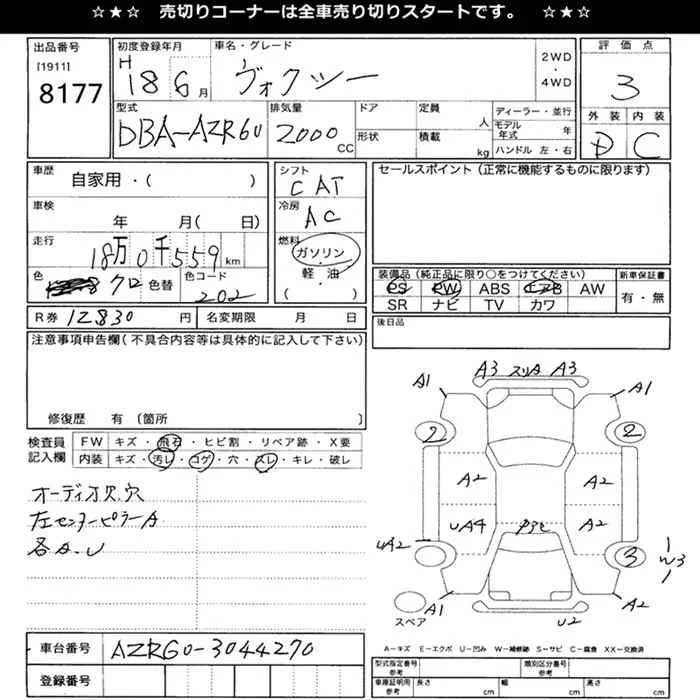 ☆★☆ 売切りコーナーは全車売り切りスタートです。 ☆★☆
出品番号
[1911]
8177
初度登録年月
H 18 6月
車名・グレード
ヴォクシー
2WD
・
4WD
評価点
3
外装 内装
D C
型式
DBA-AZR60
排気量
2000 CC
ドア
形状
定員 人
積載 kg
ディーラー・並行
モデル年式 年
ハンドル 左・右
車歴
自家用・( )
車検
年 月( 日)
走行
18万0千559km
色 クロ 色替 色コード 202
シフト
CAT
冷房
AC
燃料
ガソリン
・
軽・油
( )
セールスポイント(正常に機能するものに限ります)
装備品(純正品に限り○をつけてください)
PS PW ABS エアB AW
SR ナビ TV カワ
新車保証書
有・無
R券 12830 円 名変期限 月 日
後日品
注意事項申告欄(不具合内容等は具体的に記入して下さい)
修復歴 有(箇所 )
検査員
記入欄
FW キズ・飛石・ヒビ割・リペア跡・X要
内装 キズ・汚レ・コゲ・穴・スレ・キレ・破レ
オーディオ欠.穴
左センターピラーA
各A.U
A3 スリA A3
A1 A1
2 2
A2 A2
UA4 A2
UA2
3 W3
A1 A2
U2
スペア
A-キズ E-エクボ U-凹み W-補修跡 S-サビ C-腐食 XX-交換済
車台番号 AZR60-3044270
登録番号
型式指定番号
参考
類別区分番号
参考
車庫証明用
参考
長さ cm 幅 cm 高さ cm